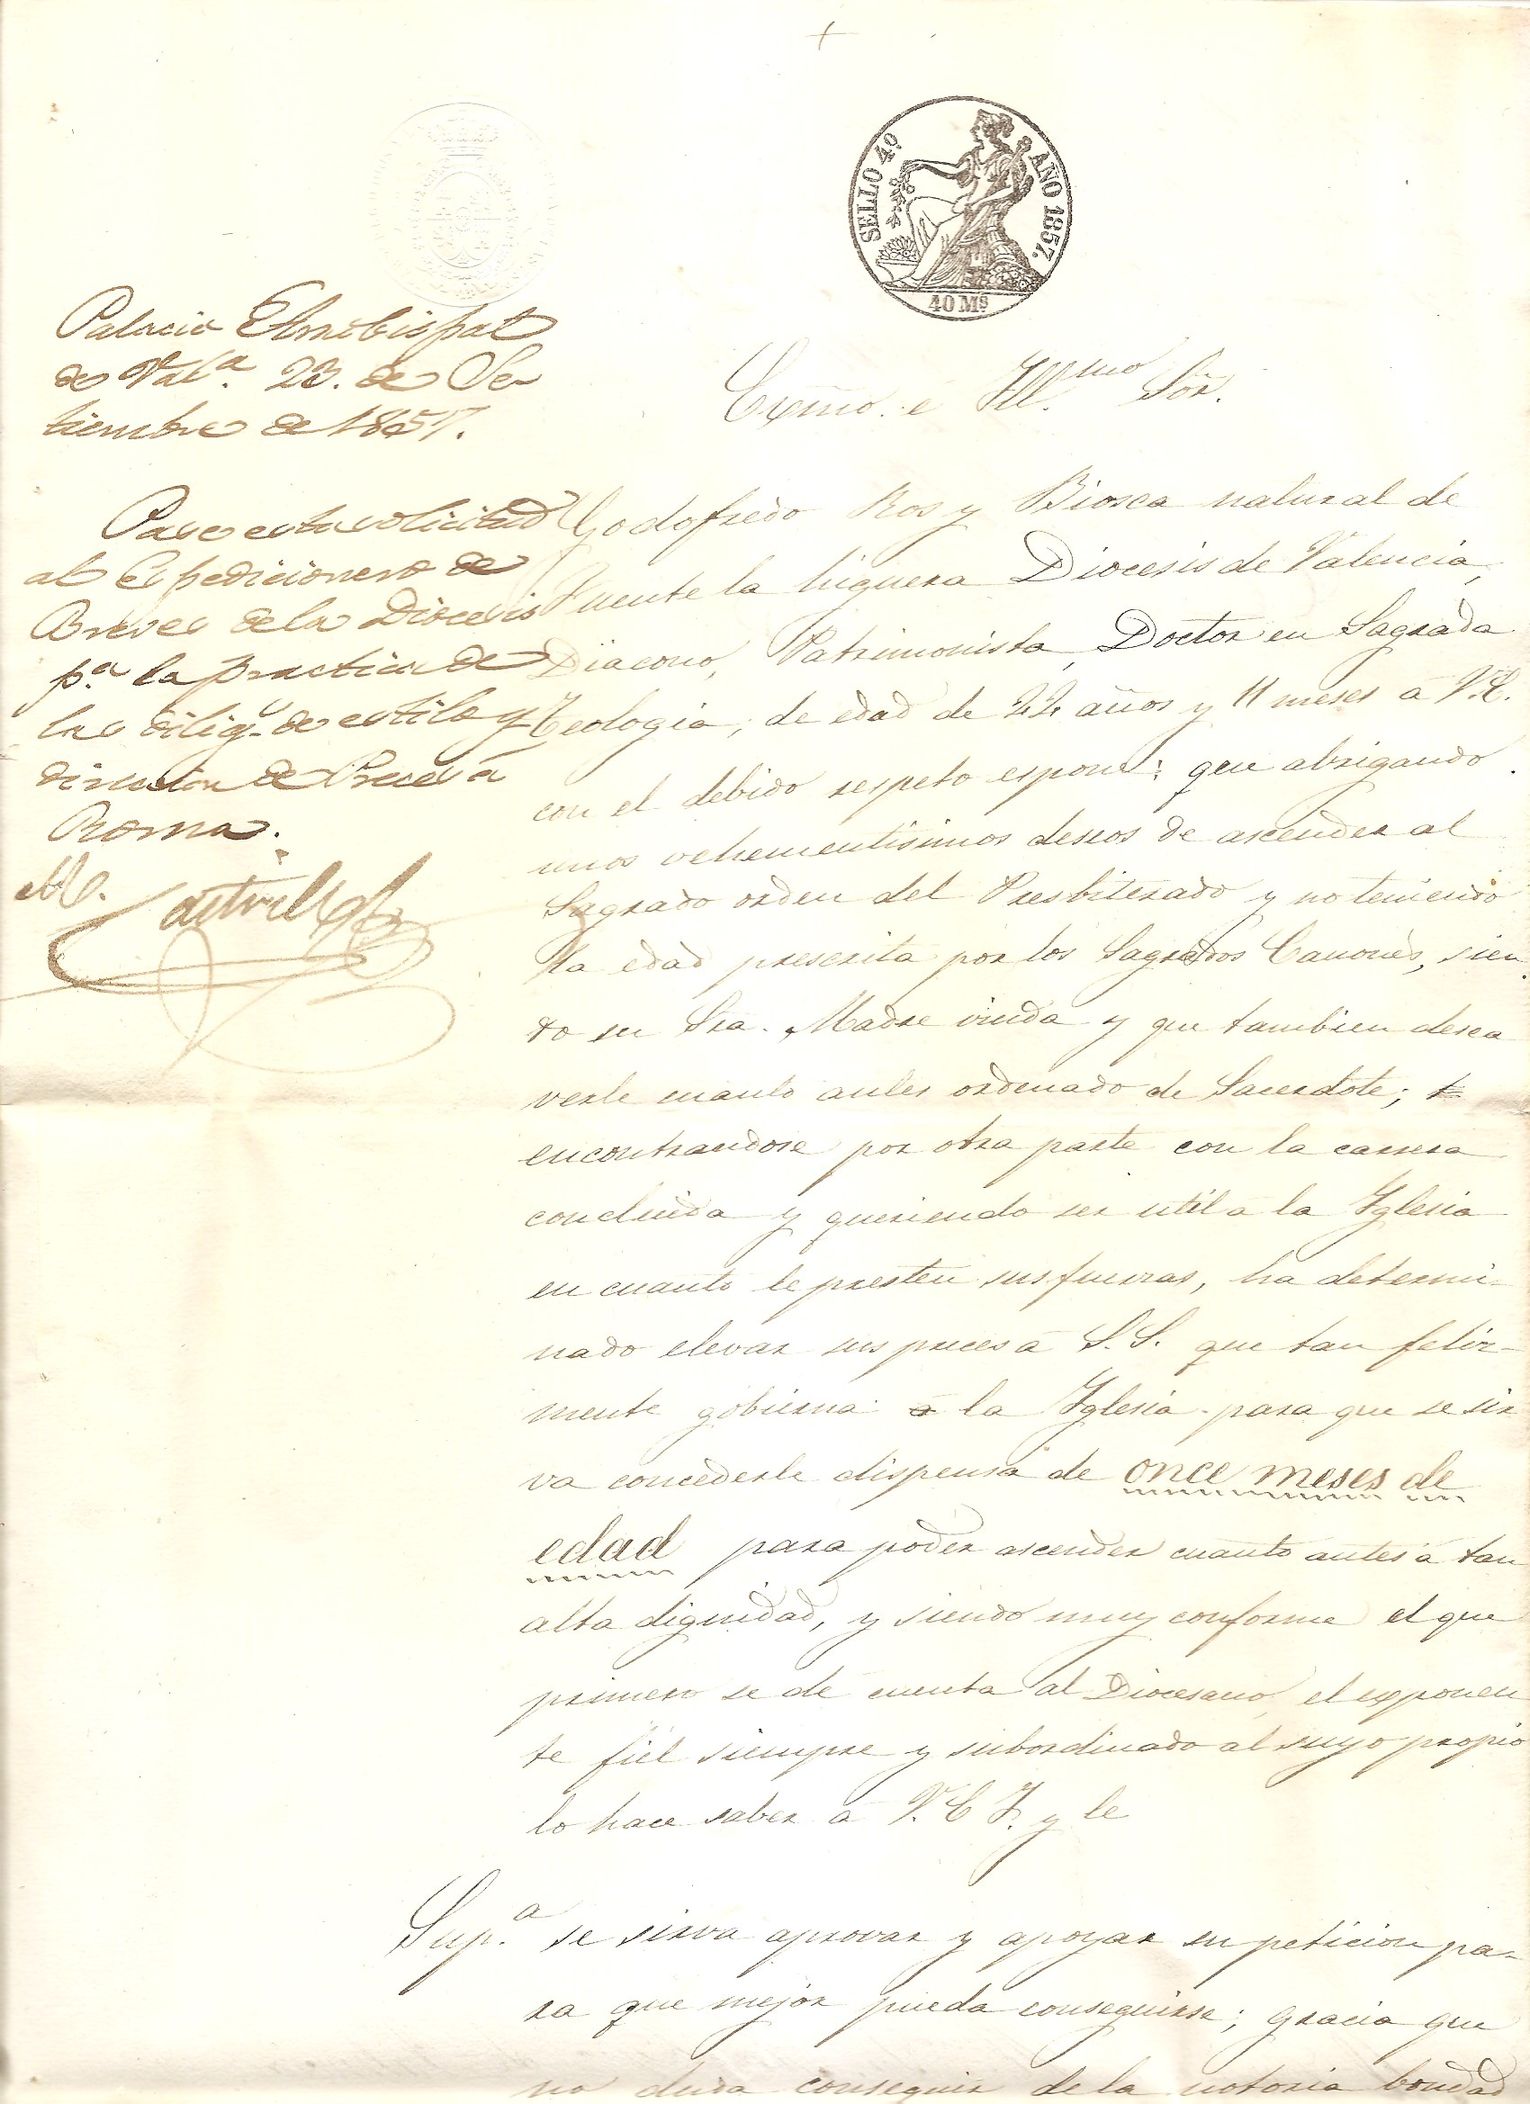 SELLO 4º AÑO 1857.
40 Ms
Palacio Arzobispal
de Vala. 23. de Se-
tiembre de 1857.
Pase esta solicitud
al Espedicionero de
Breves de la Diocesis
pa. la practica de
las dilig.s de estilo y
direccion de Preces á
Roma.
Exmo. e Ill.mo Sor.
Godofredo Ros y Biosca natural de
Fuente la higuera Diocesis de Valencia,
Diacono, Patrimonista, Doctor en Sagrada
Teologia, de edad de 22 años y 11 meses á V.E.
con el debido respeto espone: que abrigando
unos vehementisimos deseos de ascender al
Sagrado orden del Presbiterado y no teniendo
la edad prescrita por los Sagrados Canones, sien
do su Sra. Madre viuda y que tambien desea
verle cuanto antes ordenado de Sacerdote;
encontrandose por otra parte con la carrera
concluida y queriendo ser util a la Iglesia
en cuanto le presten sus fuerzas, ha determi-
nado elevar sus preces á S.S. que tan feliz-
mente gobierna á la Iglesia para que se sir
va concederle dispensa de once meses de
edad para poder ascender cuanto antes á tan
alta dignidad, y siendo muy conforme el que
primero se dé cuenta al Diocesano, el exponen
te fiel siempre y subordinado al suyo propio
lo hace saber á V.E.I. y le
Sup.a se sirva aprovar y apoyar su peticion pa-
ra que mejor pueda conseguirse; gracia que
no duda conseguir de la notoria bondad